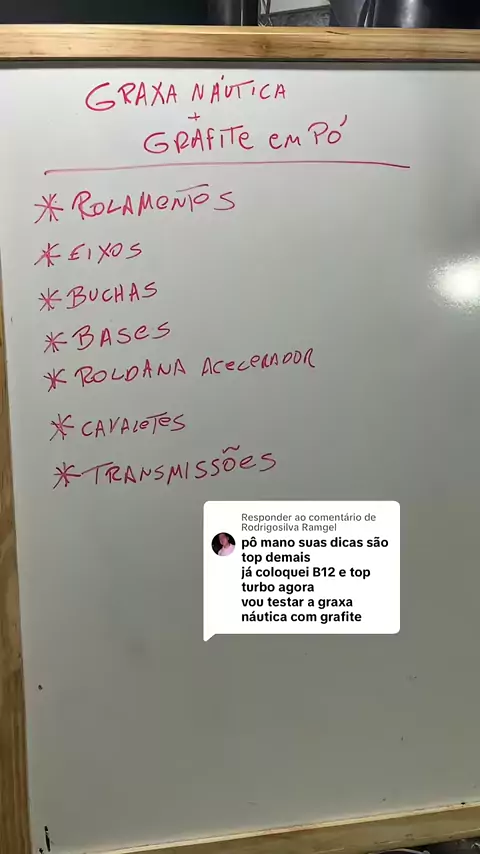 GRAXA NÁUTICA
+
GRAFITE EM PÓ
* ROLAMENTOS
* EIXOS
* BUCHAS
* BASES
* ROLDANA ACELERADOR
* CAVALETES
* TRANSMISSÕES
Responder ao comentário de
Rodrigosilva Ramgel
pô mano suas dicas são
top demais
já coloquei B12 e top
turbo agora
vou testar a graxa
náutica com grafite